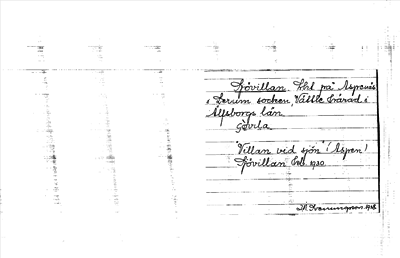 Sjövillan. Lht på Aspenäs
i Lerum socken, Vättle härad i
Älfsborgs län.
Gövila
"Villan vid sjön" (Aspen)
Sjövillan Enl. 1930.
1928